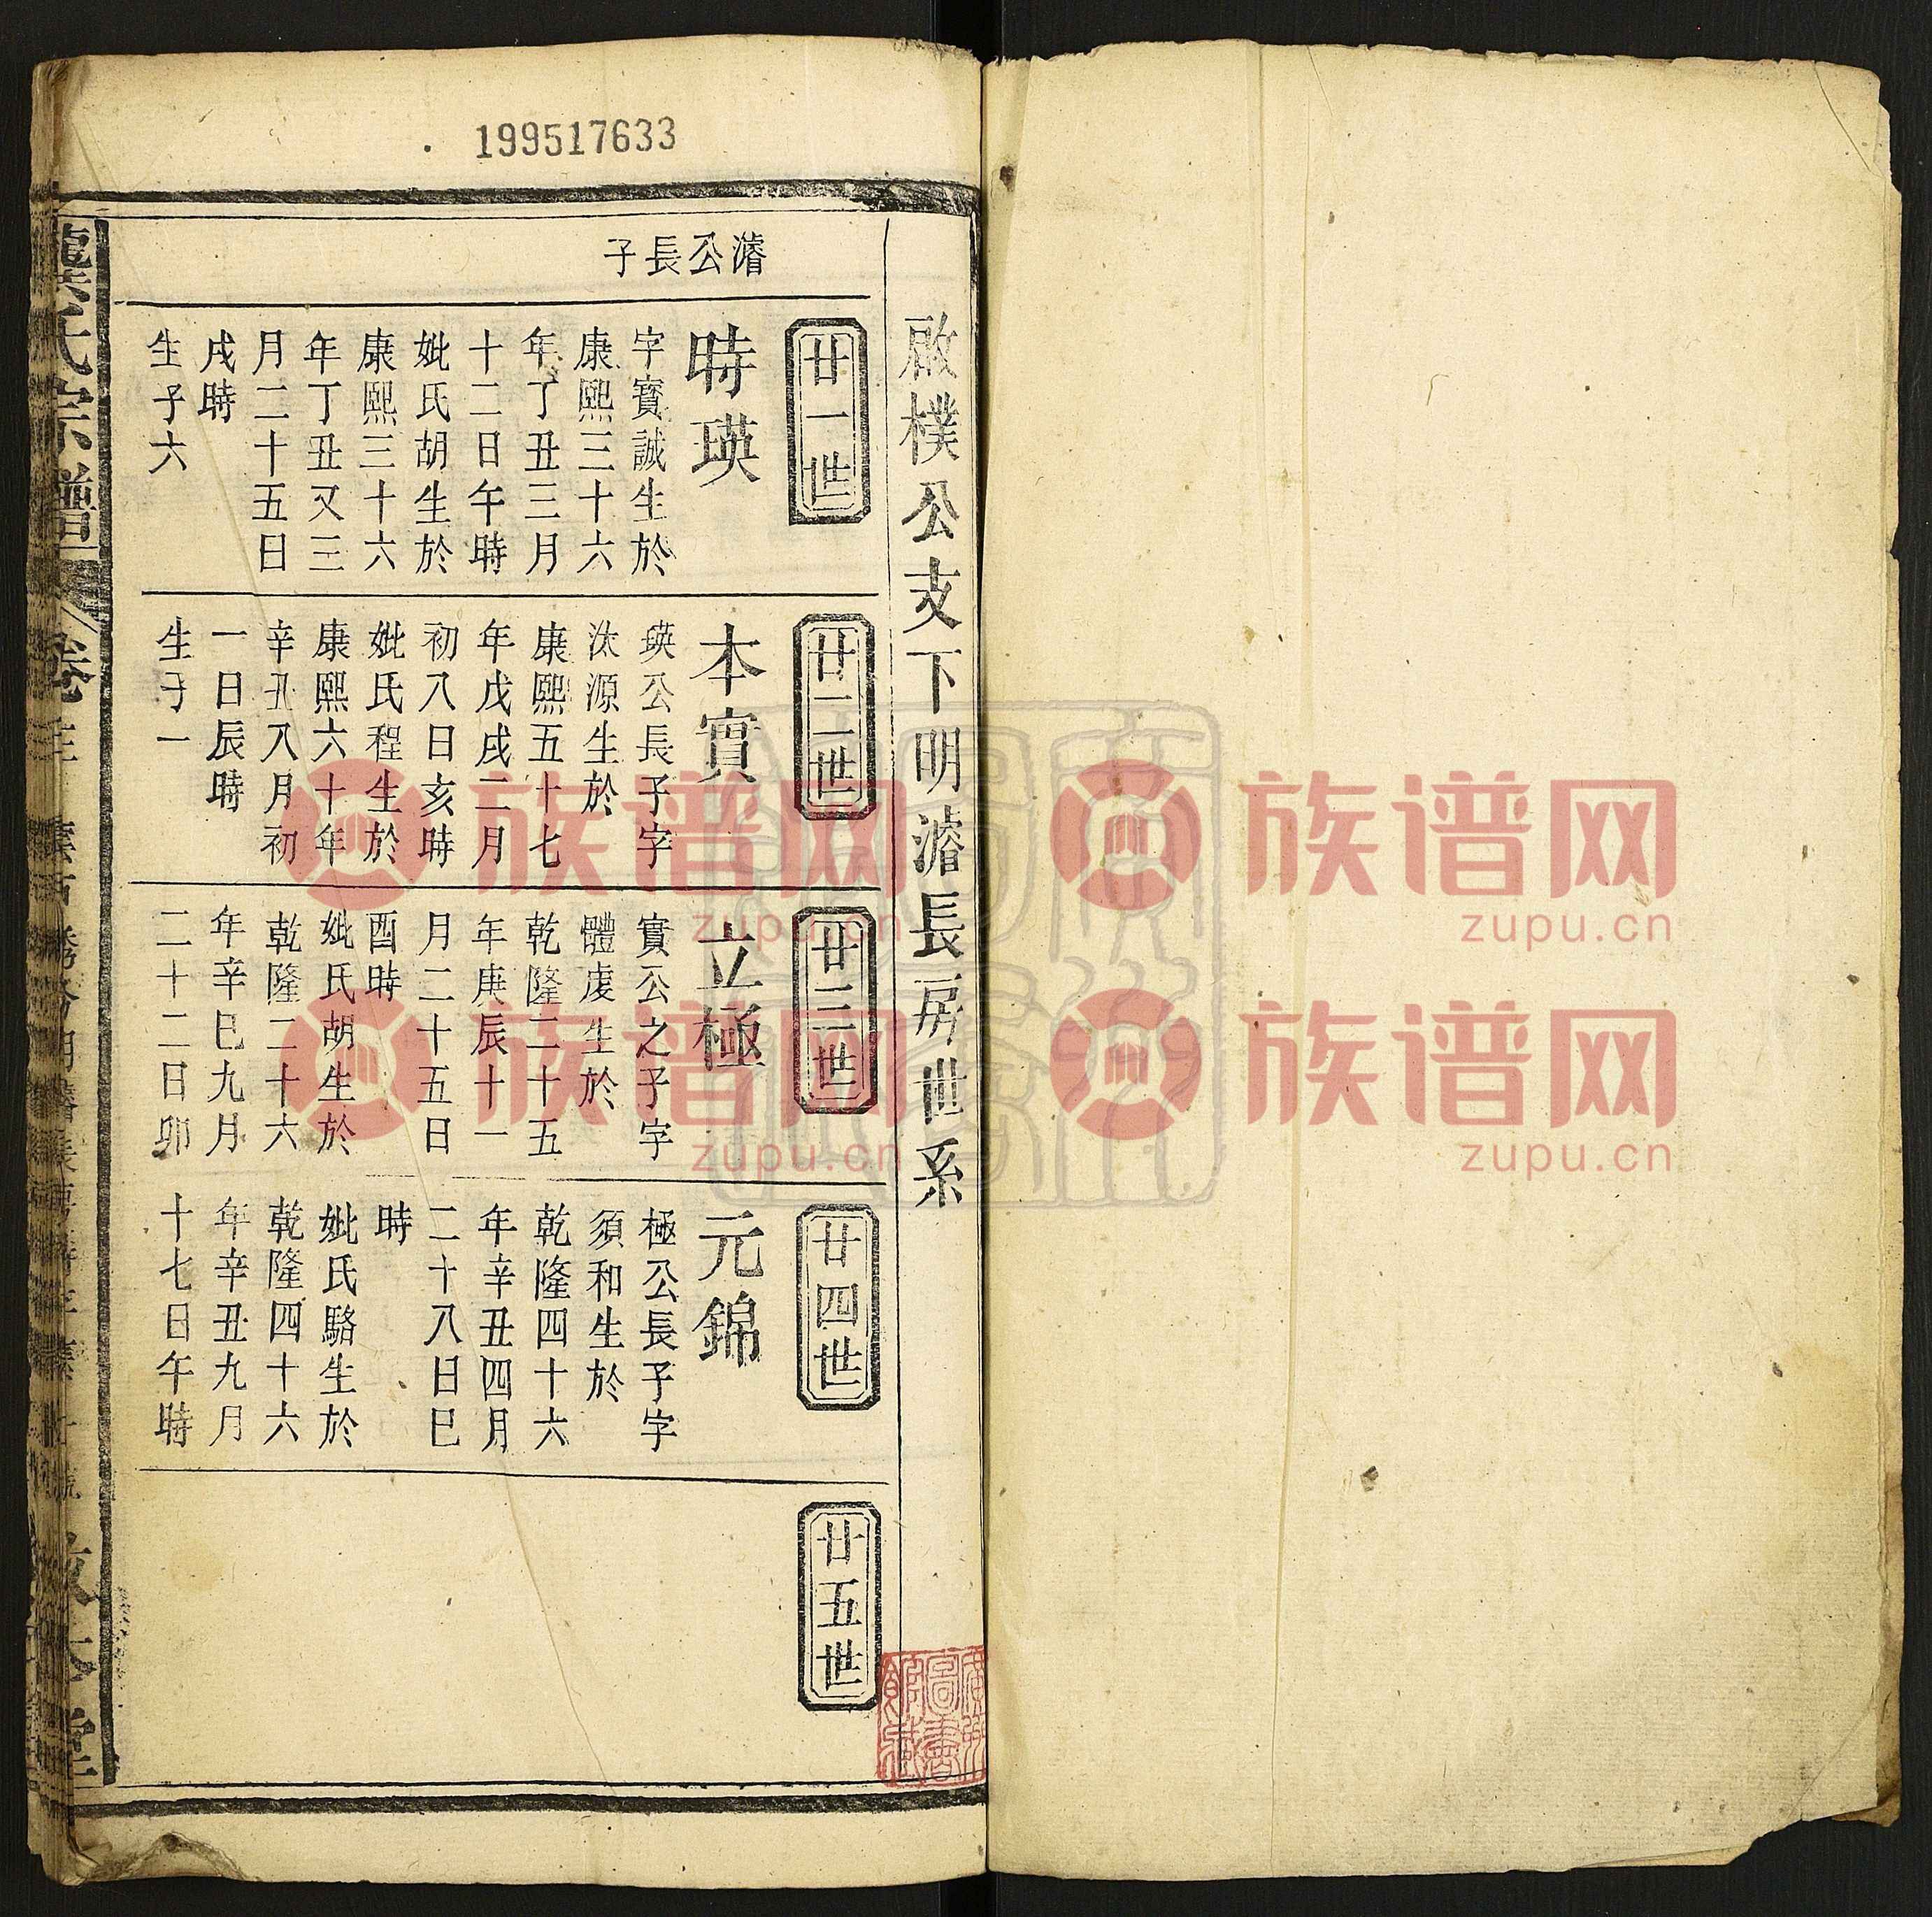 199517633
啟樸公支下明濬長房世系
濬公長子
廿一世
時瑛
字寳誠生於
康熙三十六
年丁丑三月
十二日午時
妣氏胡生於
康熙三十六
年丁丑又三
月二十五日
戌時
生子六
廿二世
本實
瑛公長子字
汰源生於
康熙五十七
年戊戌二月
初八日亥時
妣氏程生於
康熙六十年
辛丑八月初
一日辰時
生子一
廿三世
立極
實公之子字
體虔生於
乾隆二十五
年庚辰十一
月二十五日
酉時
妣氏胡生於
乾隆二十六
年辛巳九月
二十二日卯
廿四世
元錦
極公長子字
須和生於
乾隆四十六
年辛丑四月
二十八日巳
時
妣氏駱生於
乾隆四十六
年辛丑九月
十七日午時
廿五世
氏宗譜
圖書
館藏
族谱网
zupu.cn
族谱网
zupu.cn
族谱网
zupu.cn
族谱网
zupu.cn